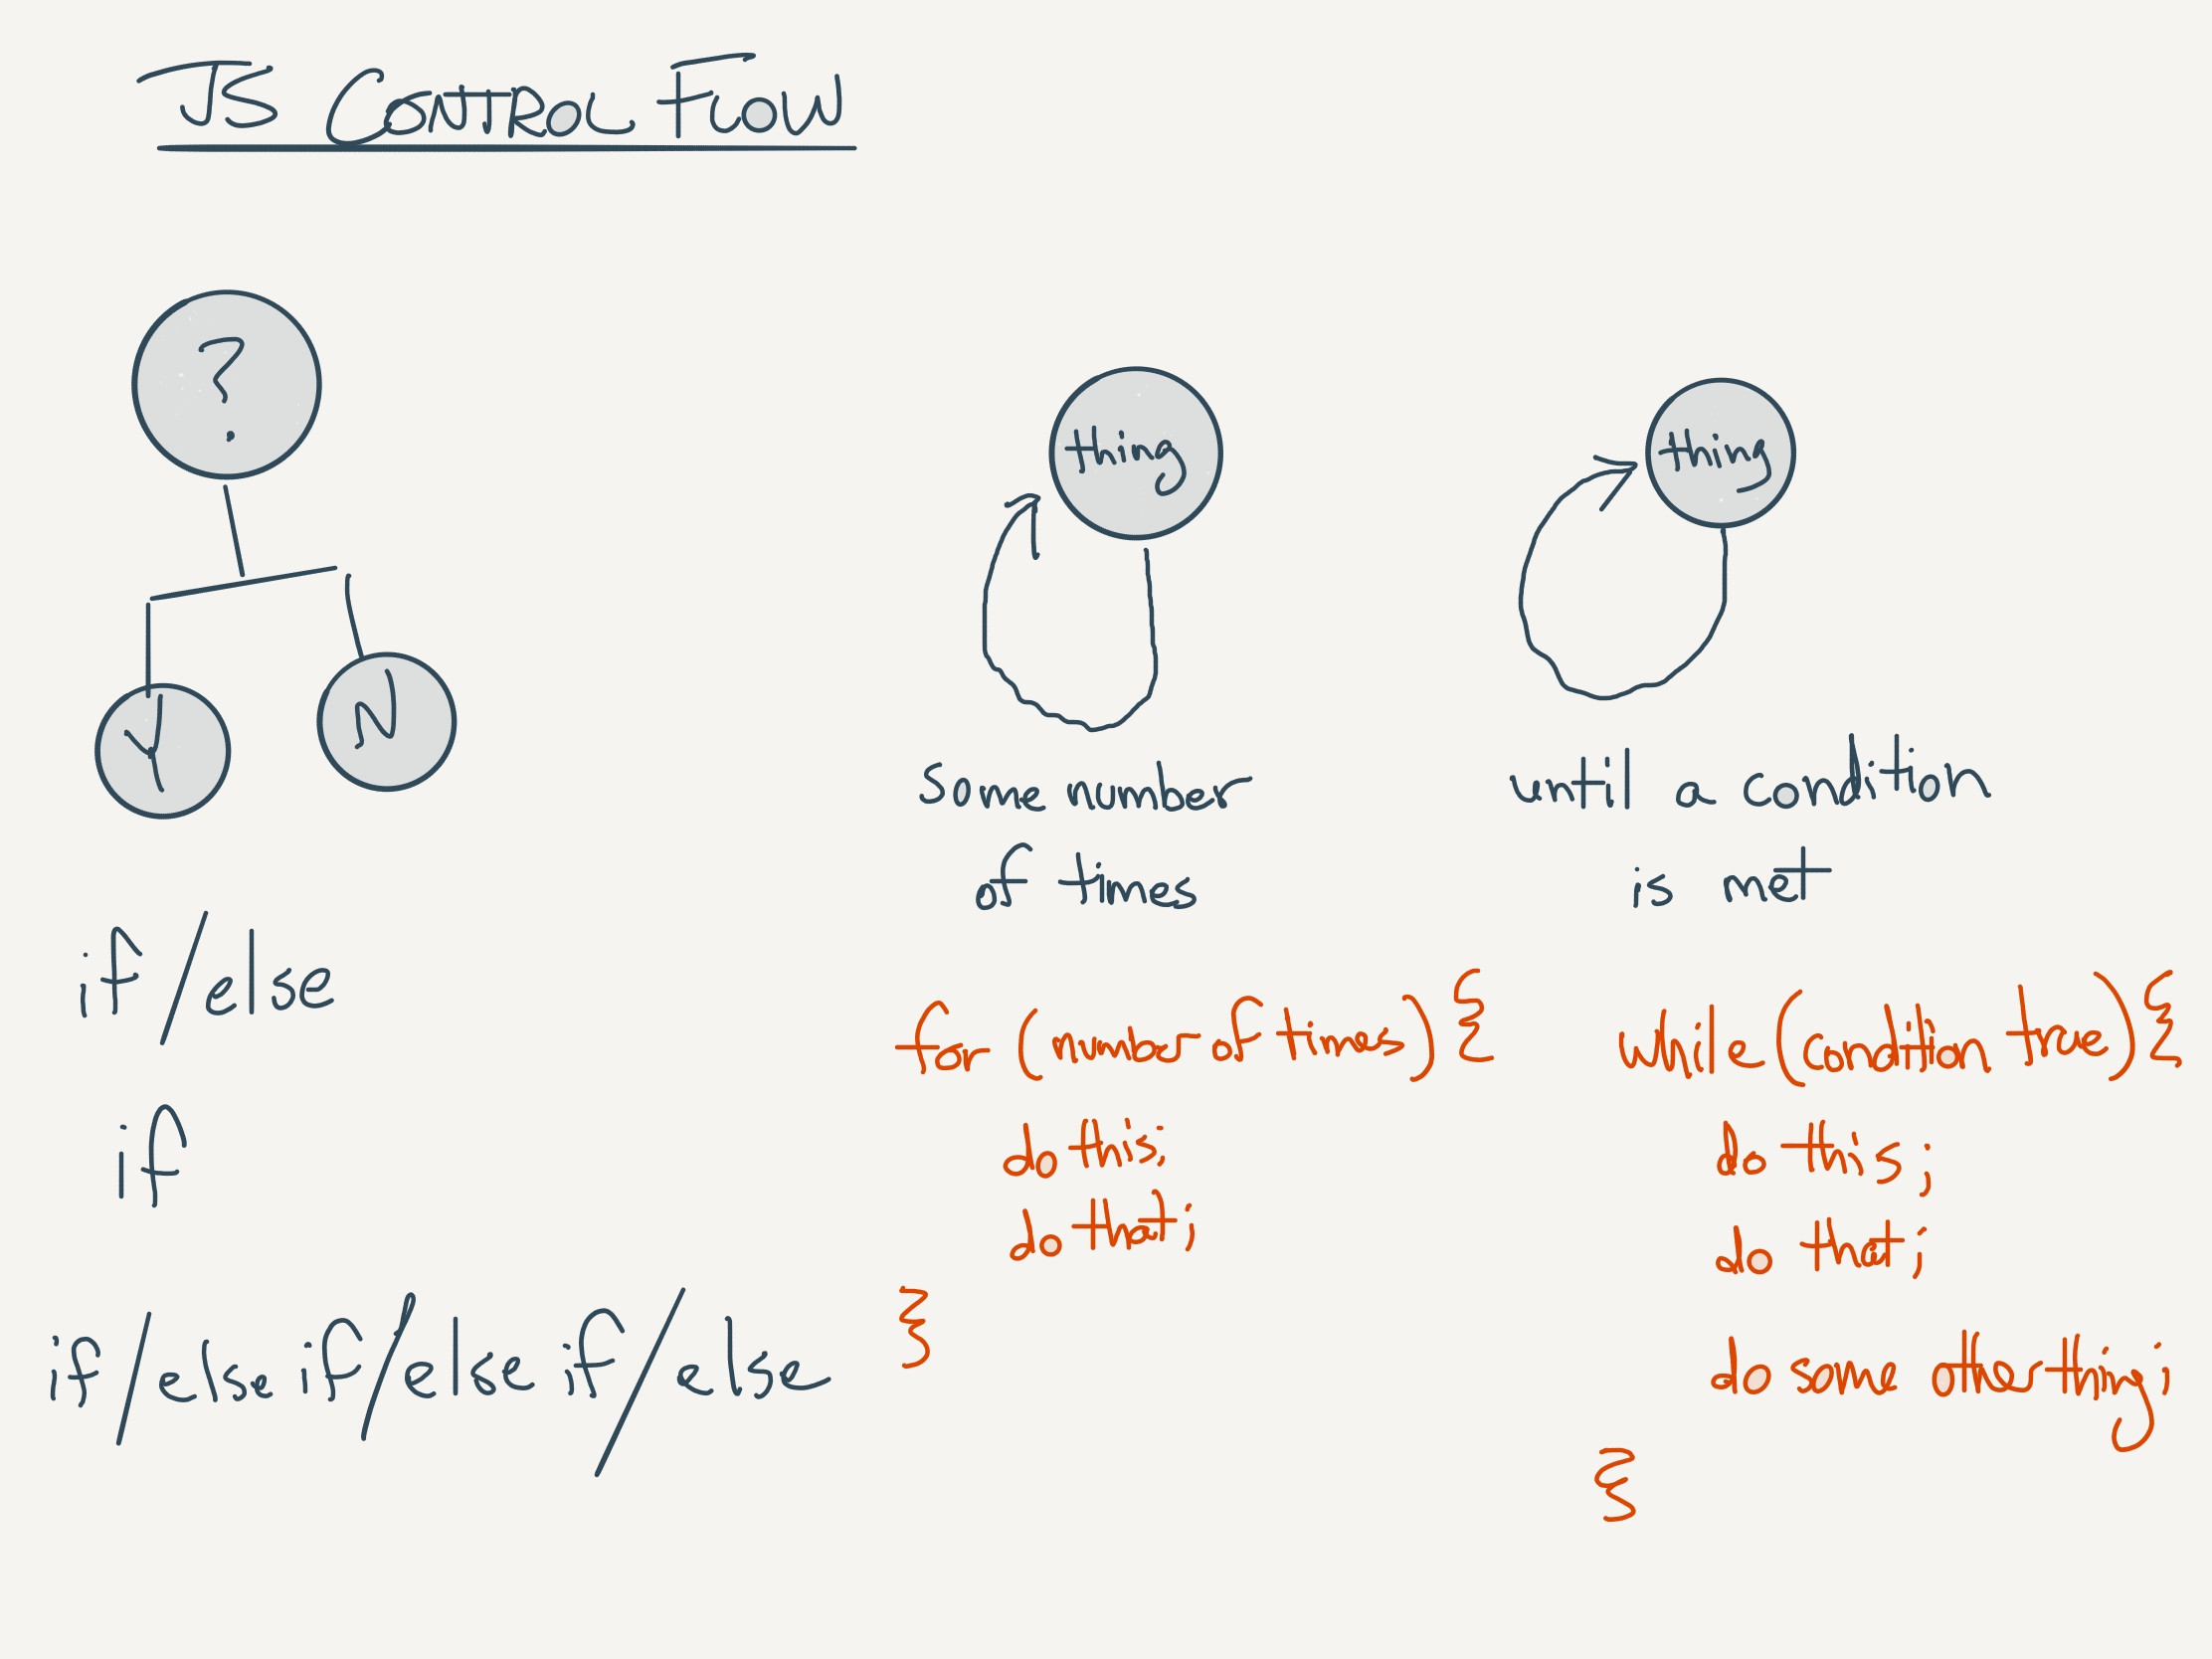 JS CONTROL FLOW
?
Y
N
if/else
if
if/else if/else if/else
thing
some number
of times
for (number of times) {
do this;
do that;
}
thing
until a condition
is met
while (condition true) {
do this;
do that;
do some other thing;
}